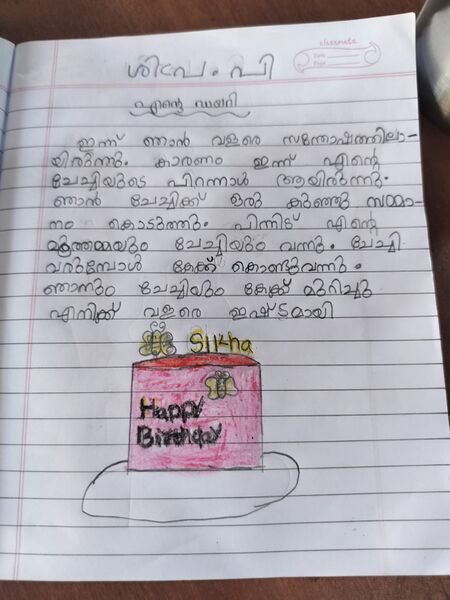 classmate
Date
Page
ശിവം. പി
എന്റെ ഡയറി
ഇന്ന് ഞാൻ വളരെ സന്തോഷത്തിലാ-
യിരുന്നു. കാരണം ഇന്ന് എന്റെ
ചേച്ചിയുടെ പിറന്നാൾ ആയിരുന്നു.
ഞാൻ ചേച്ചിക്ക് ഒരു കുഞ്ഞു സമ്മാ-
നം കൊടുത്തു. പിന്നിട് എന്റെ
മൂത്തമ്മയും ചേച്ചിയും വന്നു. ചേച്ചി
വരുമ്പോൾ കേക്ക് കൊണ്ടുവന്നു.
ഞാനും ചേച്ചിയും കേക്ക് മുറിച്ചു
എനിക്ക് വളരെ ഇഷ്ടമായി
Sikha
Happy
Birthday